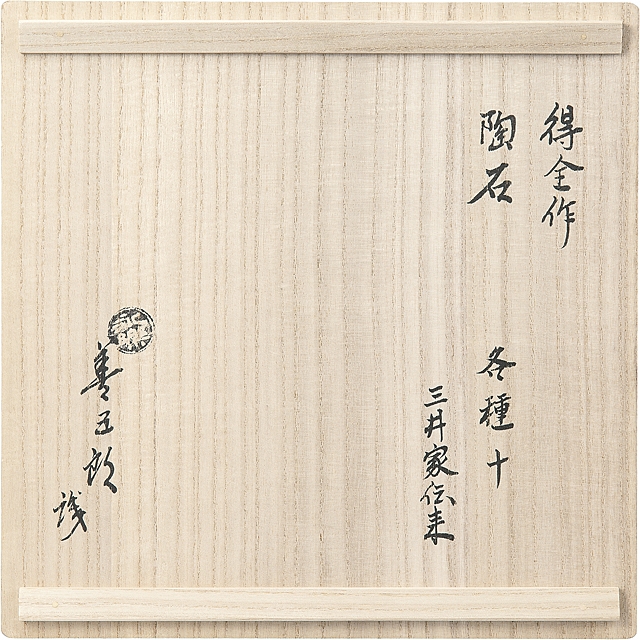 得全作
陶石 各種十
三井家伝来
善五郎
識